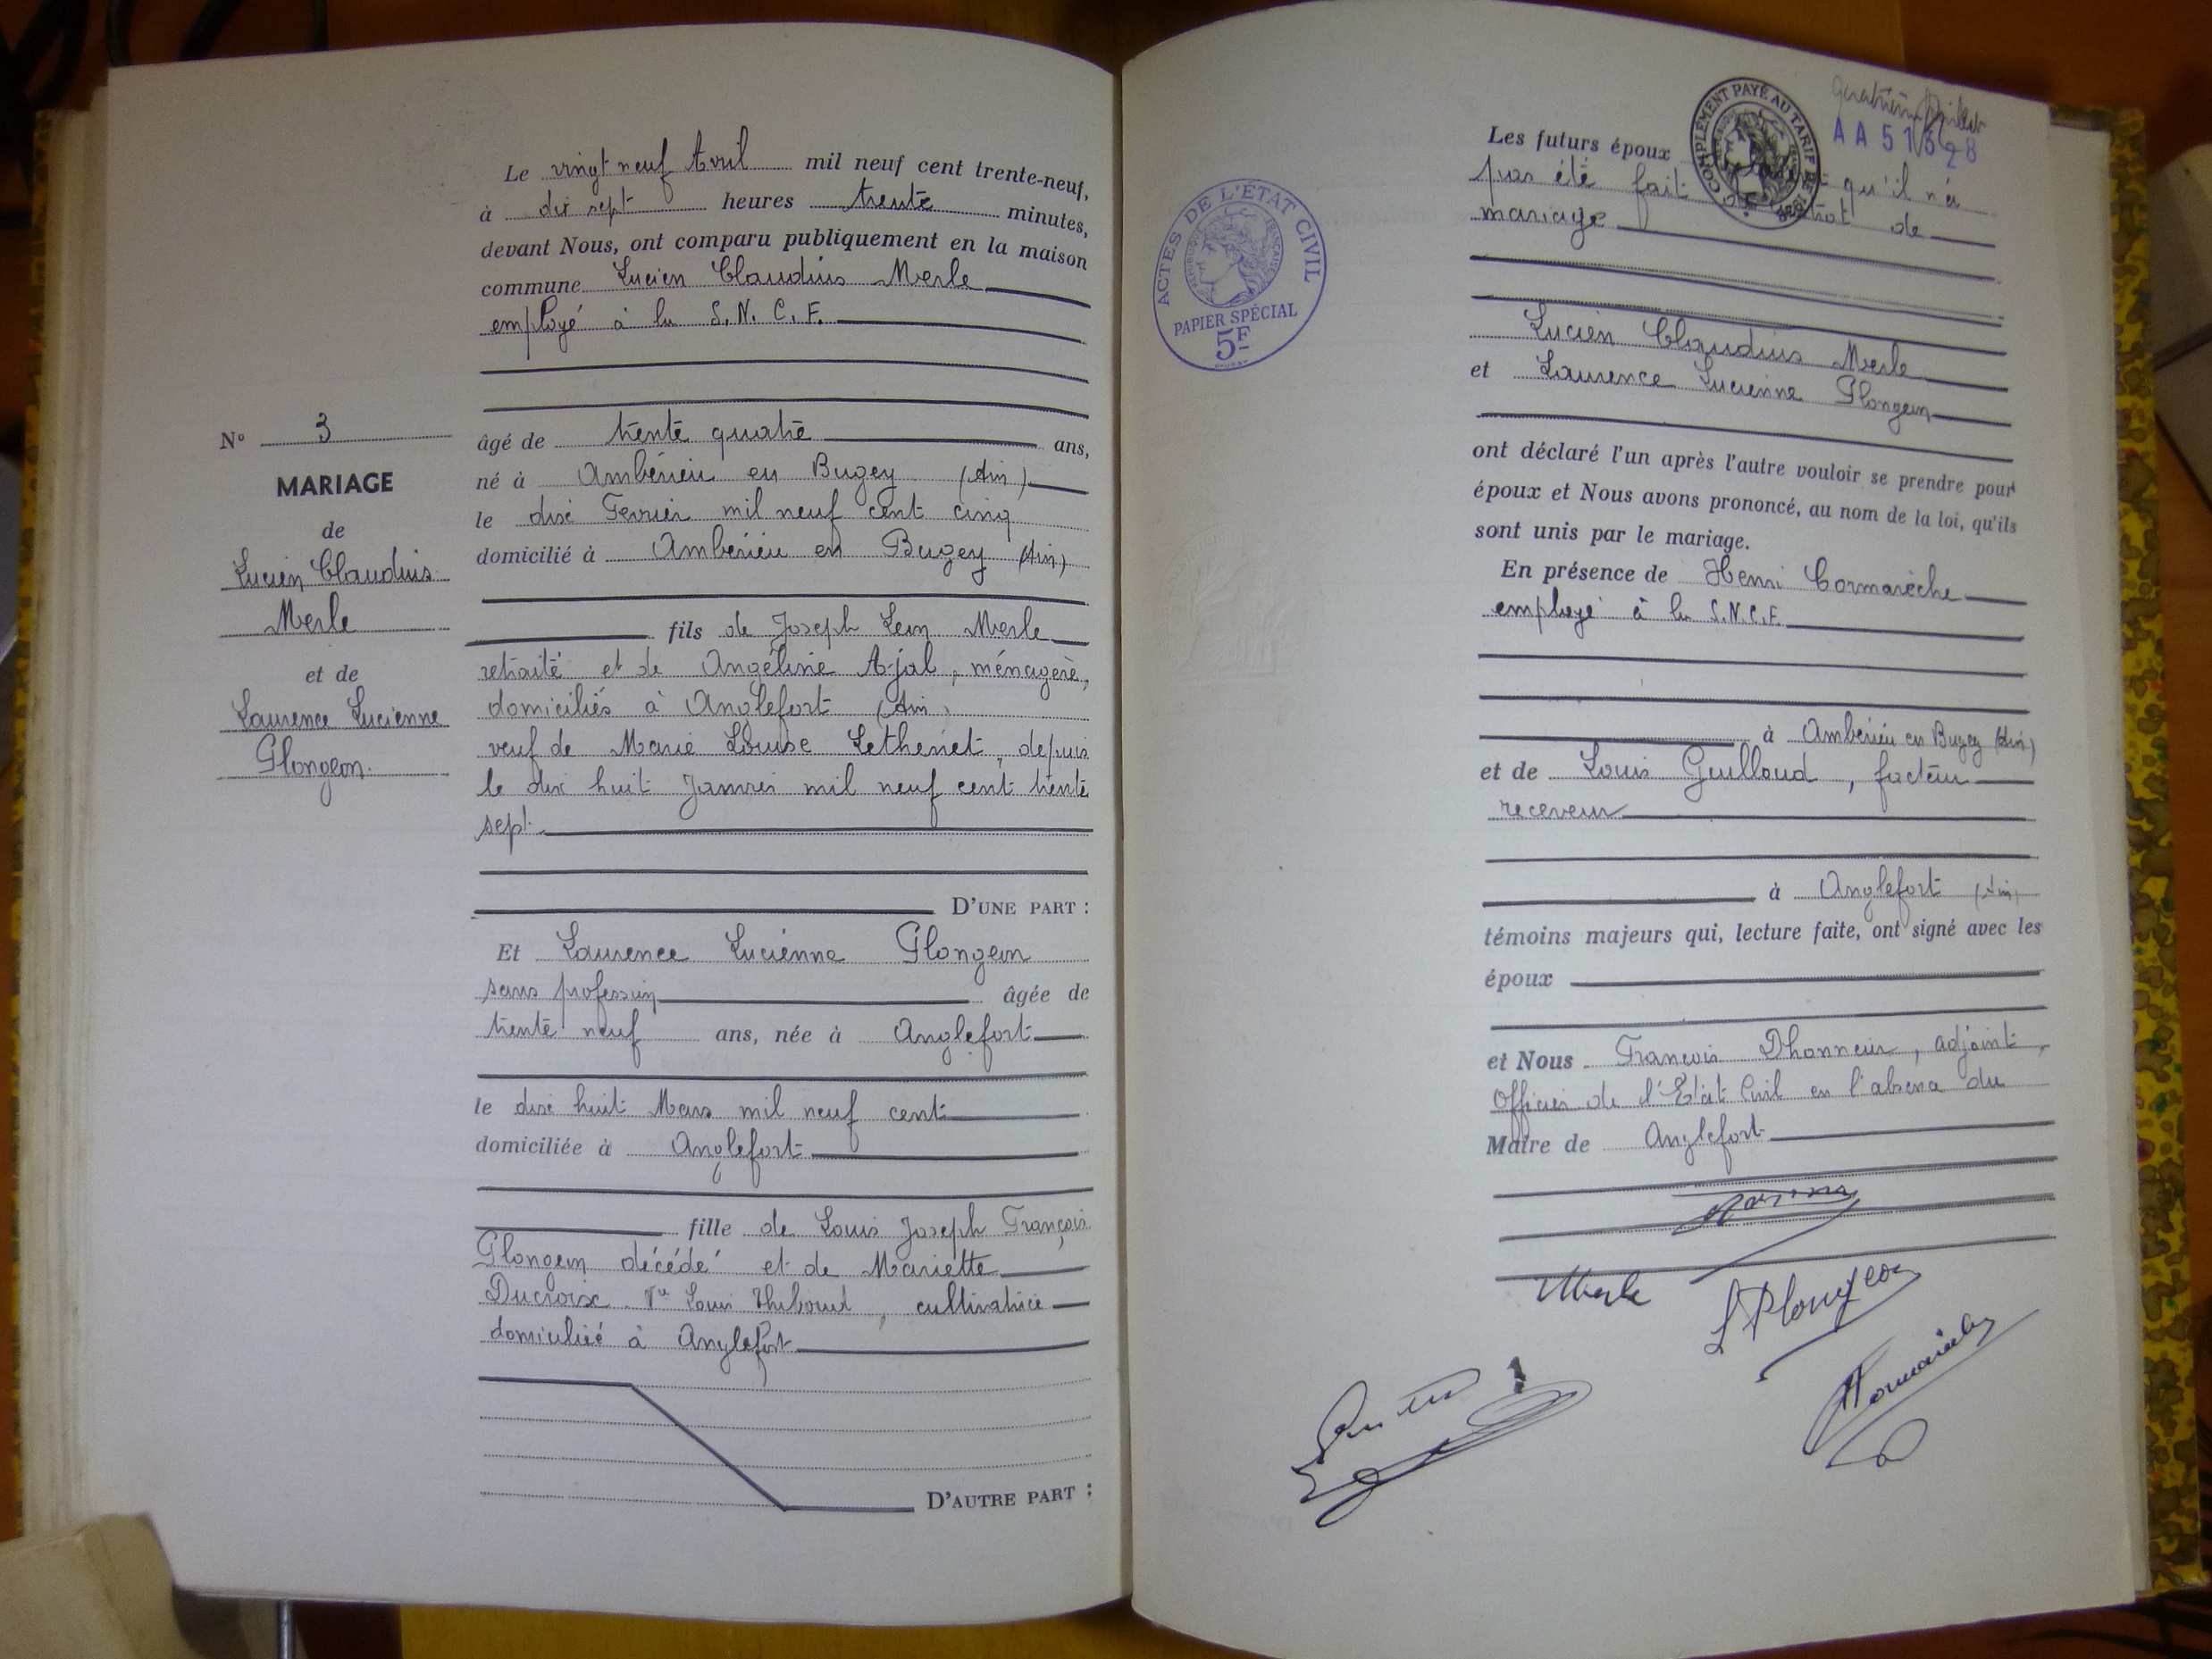 Le vingt neuf Avril mil neuf cent trente-neuf,
à dix sept heures trente minutes,
devant Nous, ont comparu publiquement en la maison
commune Lucien Claudius Merle
employé à la S.N.C.F.
N° 3
MARIAGE
de
Lucien Claudius
Merle
et de
Laurence Lucienne
Plongeon.
âgé de trente quatre ans,
né à Ambérieu en Bugey (Ain)
le dix Fevrier mil neuf cent cinq
domicilié à Ambérieu en Bugey (Ain)
fils de Joseph Léon Merle
retraité et de Angéline Ajal, ménagère,
domiciliés à Anglefort (Ain)
veuf de Marie Louise depuis
le dix huit Janvier mil neuf cent trente
sept.
D'UNE PART :
Et Laurence Lucienne Plongeon
sans profession âgée de
trente neuf ans, née à Anglefort
le dix huit Mars mil neuf cent
domiciliée à Anglefort
fille de Louis Joseph François
Plongeon décédé et de Mariette
Ducroix Vve Louis cultivatrice
domiciliée à Anglefort
D'AUTRE PART :
ACTES DE L'ÉTAT CIVIL
RÉPUBLIQUE FRANÇAISE
PAPIER SPÉCIAL
5F
COMPLÉMENT PAYÉ AU TARIF DE
Les futurs époux
pas été fait qu'il n'a
mariage de
Lucien Claudius Merle
et Laurence Lucienne Plongeon
ont déclaré l'un après l'autre vouloir se prendre pour
époux et Nous avons prononcé, au nom de la loi, qu'ils
sont unis par le mariage.
En présence de Henri Cormarèche
employé à la S.N.C.F.
à Ambérieu en Bugey (Ain)
et de Louis Guilloud, facteur
receveur
à Anglefort (Ain)
témoins majeurs qui, lecture faite, ont signé avec les
époux
et Nous François Dhonneur, adjoint,
Officier de l'Etat Civil en l'absence du
Maire de Anglefort
Merle
L Plongeon